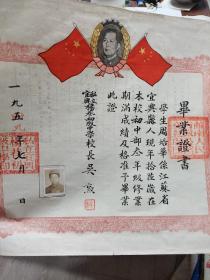 畢業證書
學生周培華係江蘇省
宜興縣人現年拾陸歲在
本校初中部叁年級修業
期滿成績及格准予畢業
此證
初級中學校長吳
一九五九年七月 日